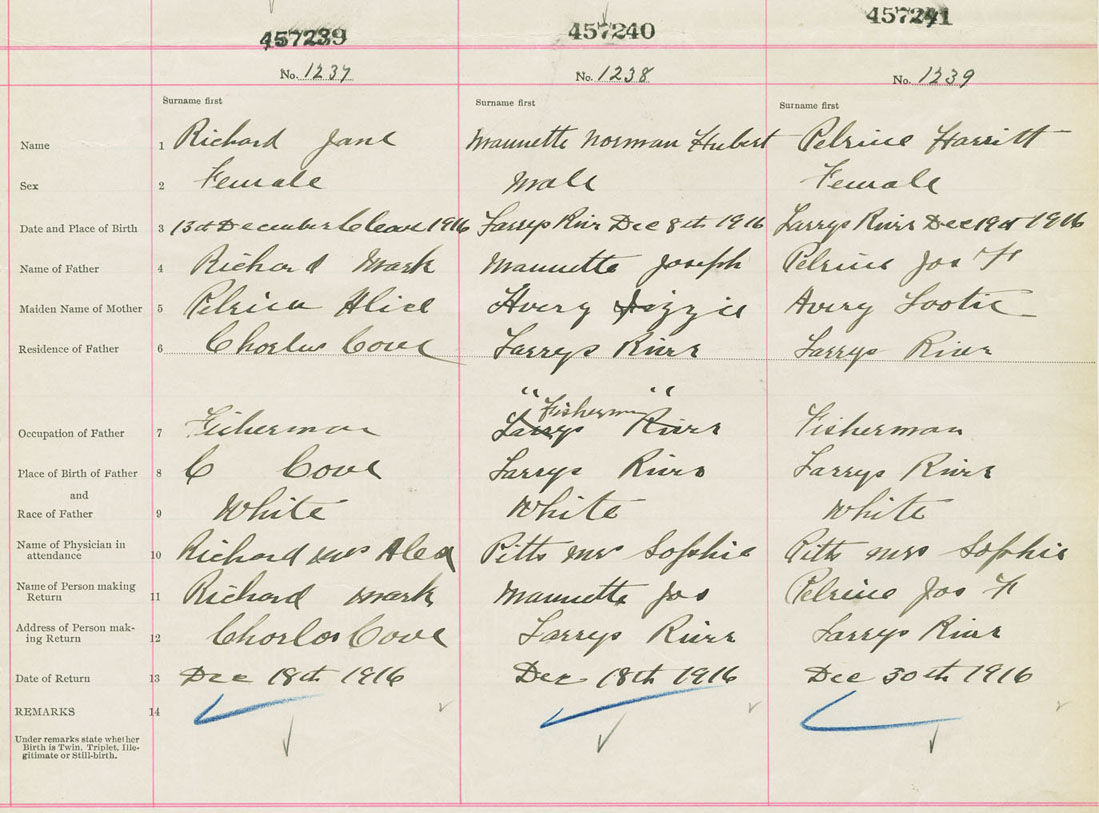 457239 457240 457241
No. 1237 No. 1238 No. 1239
Surname first Surname first Surname first
Name 1 Richard Jane Mannette Norman Hubert Pelrine Harritt
Sex 2 Female Male Female
Date and Place of Birth 3 13th December C Cove 1916 Larrys River Dec 8th 1916 Larrys River Dec 19th 1916
Name of Father 4 Richard Mark Mannette Joseph Pelrine Jos H
Maiden Name of Mother 5 Pelrien Alice Avery Lizzie Avery Lootie
Residence of Father 6 Charlos Cove Larrys River Larrys River
" "
Fisherman
Occupation of Father 7 Fisherman Larrys River Fisherman
Place of Birth of Father 8 C Cove Larrys River Larrys River
and
Race of Father 9 White White White
Name of Physician in
attendance 10 Richard mrs Alex Pitts mrs Sophie Pitts mrs Sophie
Name of Person making
Return 11 Richard Mark Mannette Jos Pelrine Jos H
Address of Person mak-
ing Return 12 Charlos Cove Larrys River Larrys River
Date of Return 13 Dec 18th 1916 Dec 18th 1916 Dec 30th 1916
REMARKS 14
Under remarks state whether
Birth is Twin, Triplet, Ille-
gitimate or Still-birth.